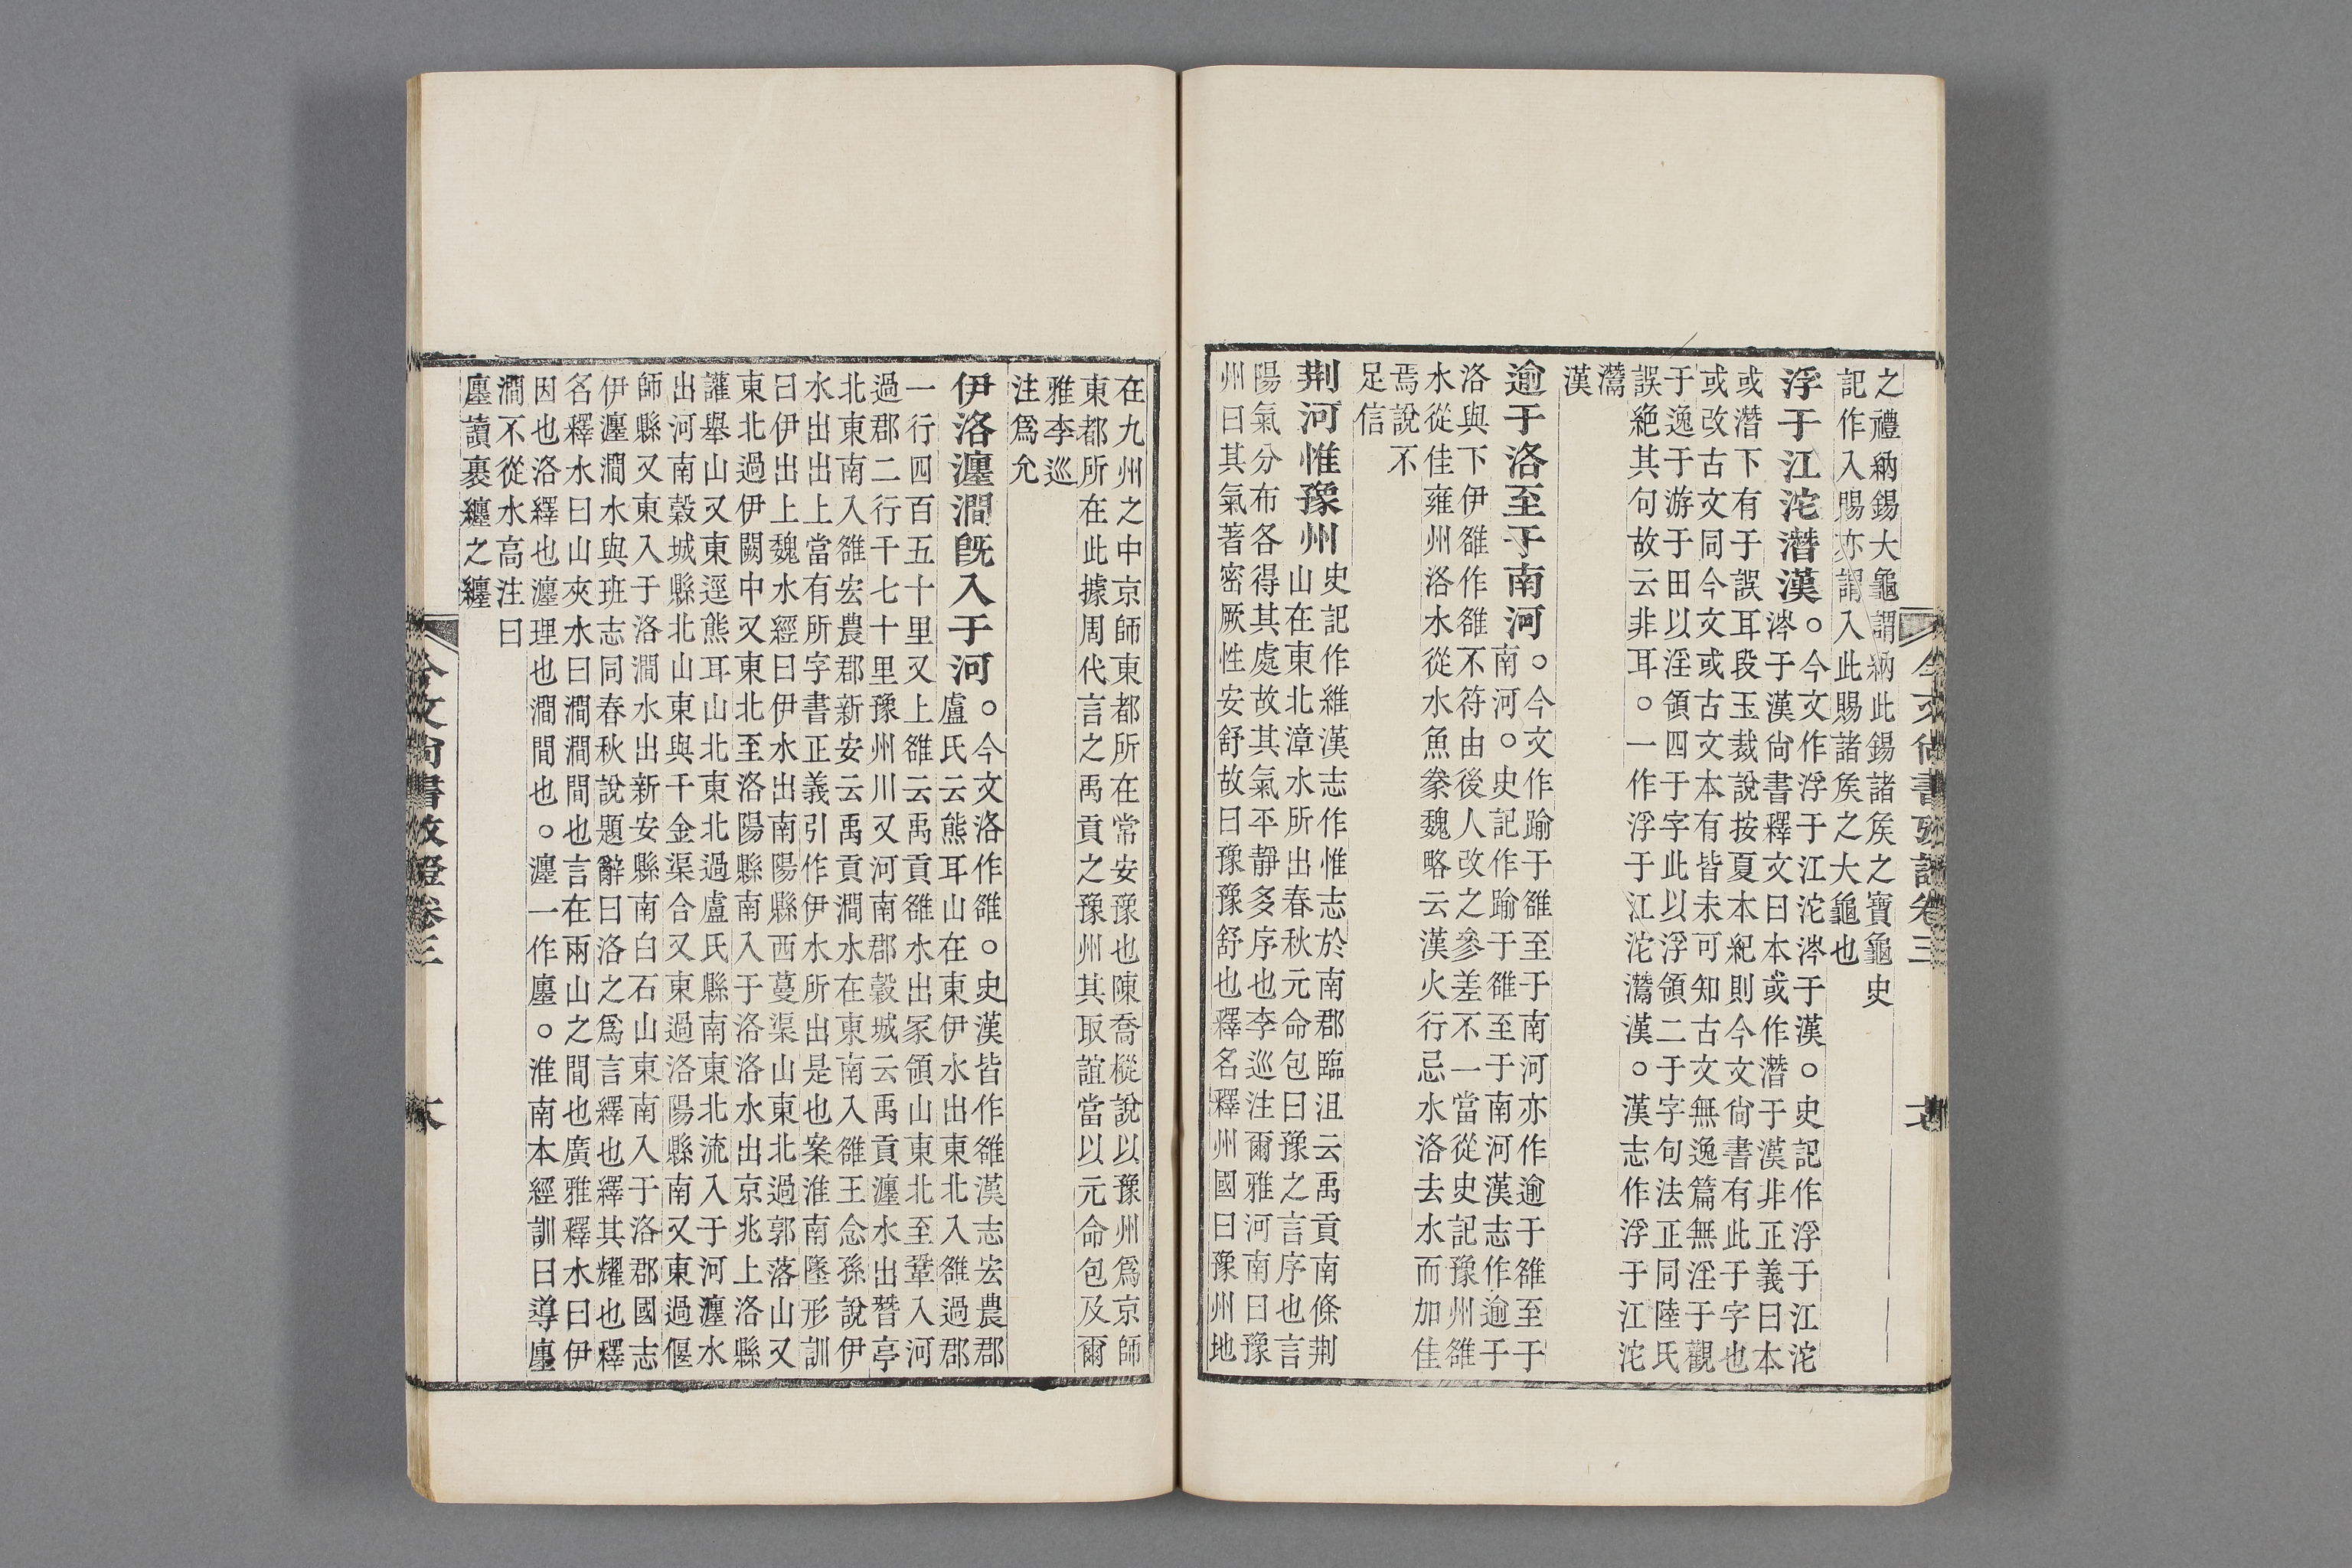 之禮納錫大龜謂納此錫諸矦之寶龜史
記作入賜亦謂入此賜諸矦之大龜也
浮于江沱潛漢。今文作浮于江沱涔于漢。史記作浮于江沱
涔于漢尙書釋文曰本或作潛于漢非正義曰本
或潛下有于誤耳段玉裁說按夏本紀則今文尙書有此于字也
或改古文同今文或古文本有皆未可知古文無逸篇無淫于觀
于逸于游于田以淫領四于字此以浮領二于字句法正同陸氏
誤絶其句故云非耳。一作浮于江沱灊漢。漢志作浮于江沱
灊
漢
逾于洛至于南河。今文作踰于雒至于南河亦作逾于雒至于
南河。史記作踰于雒至于南河漢志作逾于
洛與下伊雒作雒不符由後人改之參差不一當從史記豫州雒
水從隹雍州洛水從水魚豢魏略云漢火行忌水洛去水而加隹
焉說不
足信
荆河惟豫州史記作維漢志作惟志於南郡臨沮云禹貢南條荆
山在東北漳水所出春秋元命包曰豫之言序也言
陽氣分布各得其處故其氣平靜多序也李巡注爾雅河南曰豫
州曰其氣著密厥性安舒故曰豫豫舒也釋名釋州國曰豫州地
今文尙書攷證卷三
在九州之中京師東都所在常安豫也陳喬樅說以豫州爲京師
東都所在此據周代言之禹貢之豫州其取誼當以元命包及爾
雅李巡
注爲允
伊洛瀍澗旣入于河。今文洛作雒。史漢皆作雒漢志宏農郡
盧氏云熊耳山在東伊水出東北入雒過郡
一行四百五十里又上雒云禹貢雒水出冢領山東北至鞏入河
過郡二行千七十里豫州川又河南郡穀城云禹貢瀍水出朁亭
北東南入雒宏農郡新安云禹貢澗水在東南入雒王念孫說伊
水出出上當有所字書正義引作伊水所出是也案淮南墬形訓
曰伊出上魏水經曰伊水出南陽縣西蔓渠山東北過郭落山又
東北過伊闕中又東北至洛陽縣南入于洛洛水出京兆上洛縣
讙舉山又東逕熊耳山北東北過盧氏縣南東北流入于河瀍水
出河南穀城縣北山東與千金渠合又東過洛陽縣南又東過偃
師縣又東入于洛澗水出新安縣南白石山東南入于洛郡國志
伊瀍澗水與班志同春秋說題辭曰洛之爲言繹也繹其耀也釋
名釋水曰山夾水曰澗澗間也言在兩山之間也廣雅釋水曰伊
因也洛繹也瀍理也澗間也。瀍一作廛。淮南本經訓曰導廛
澗不從水高注曰
廛讀裹纏之纏
今文尙書攷證卷三